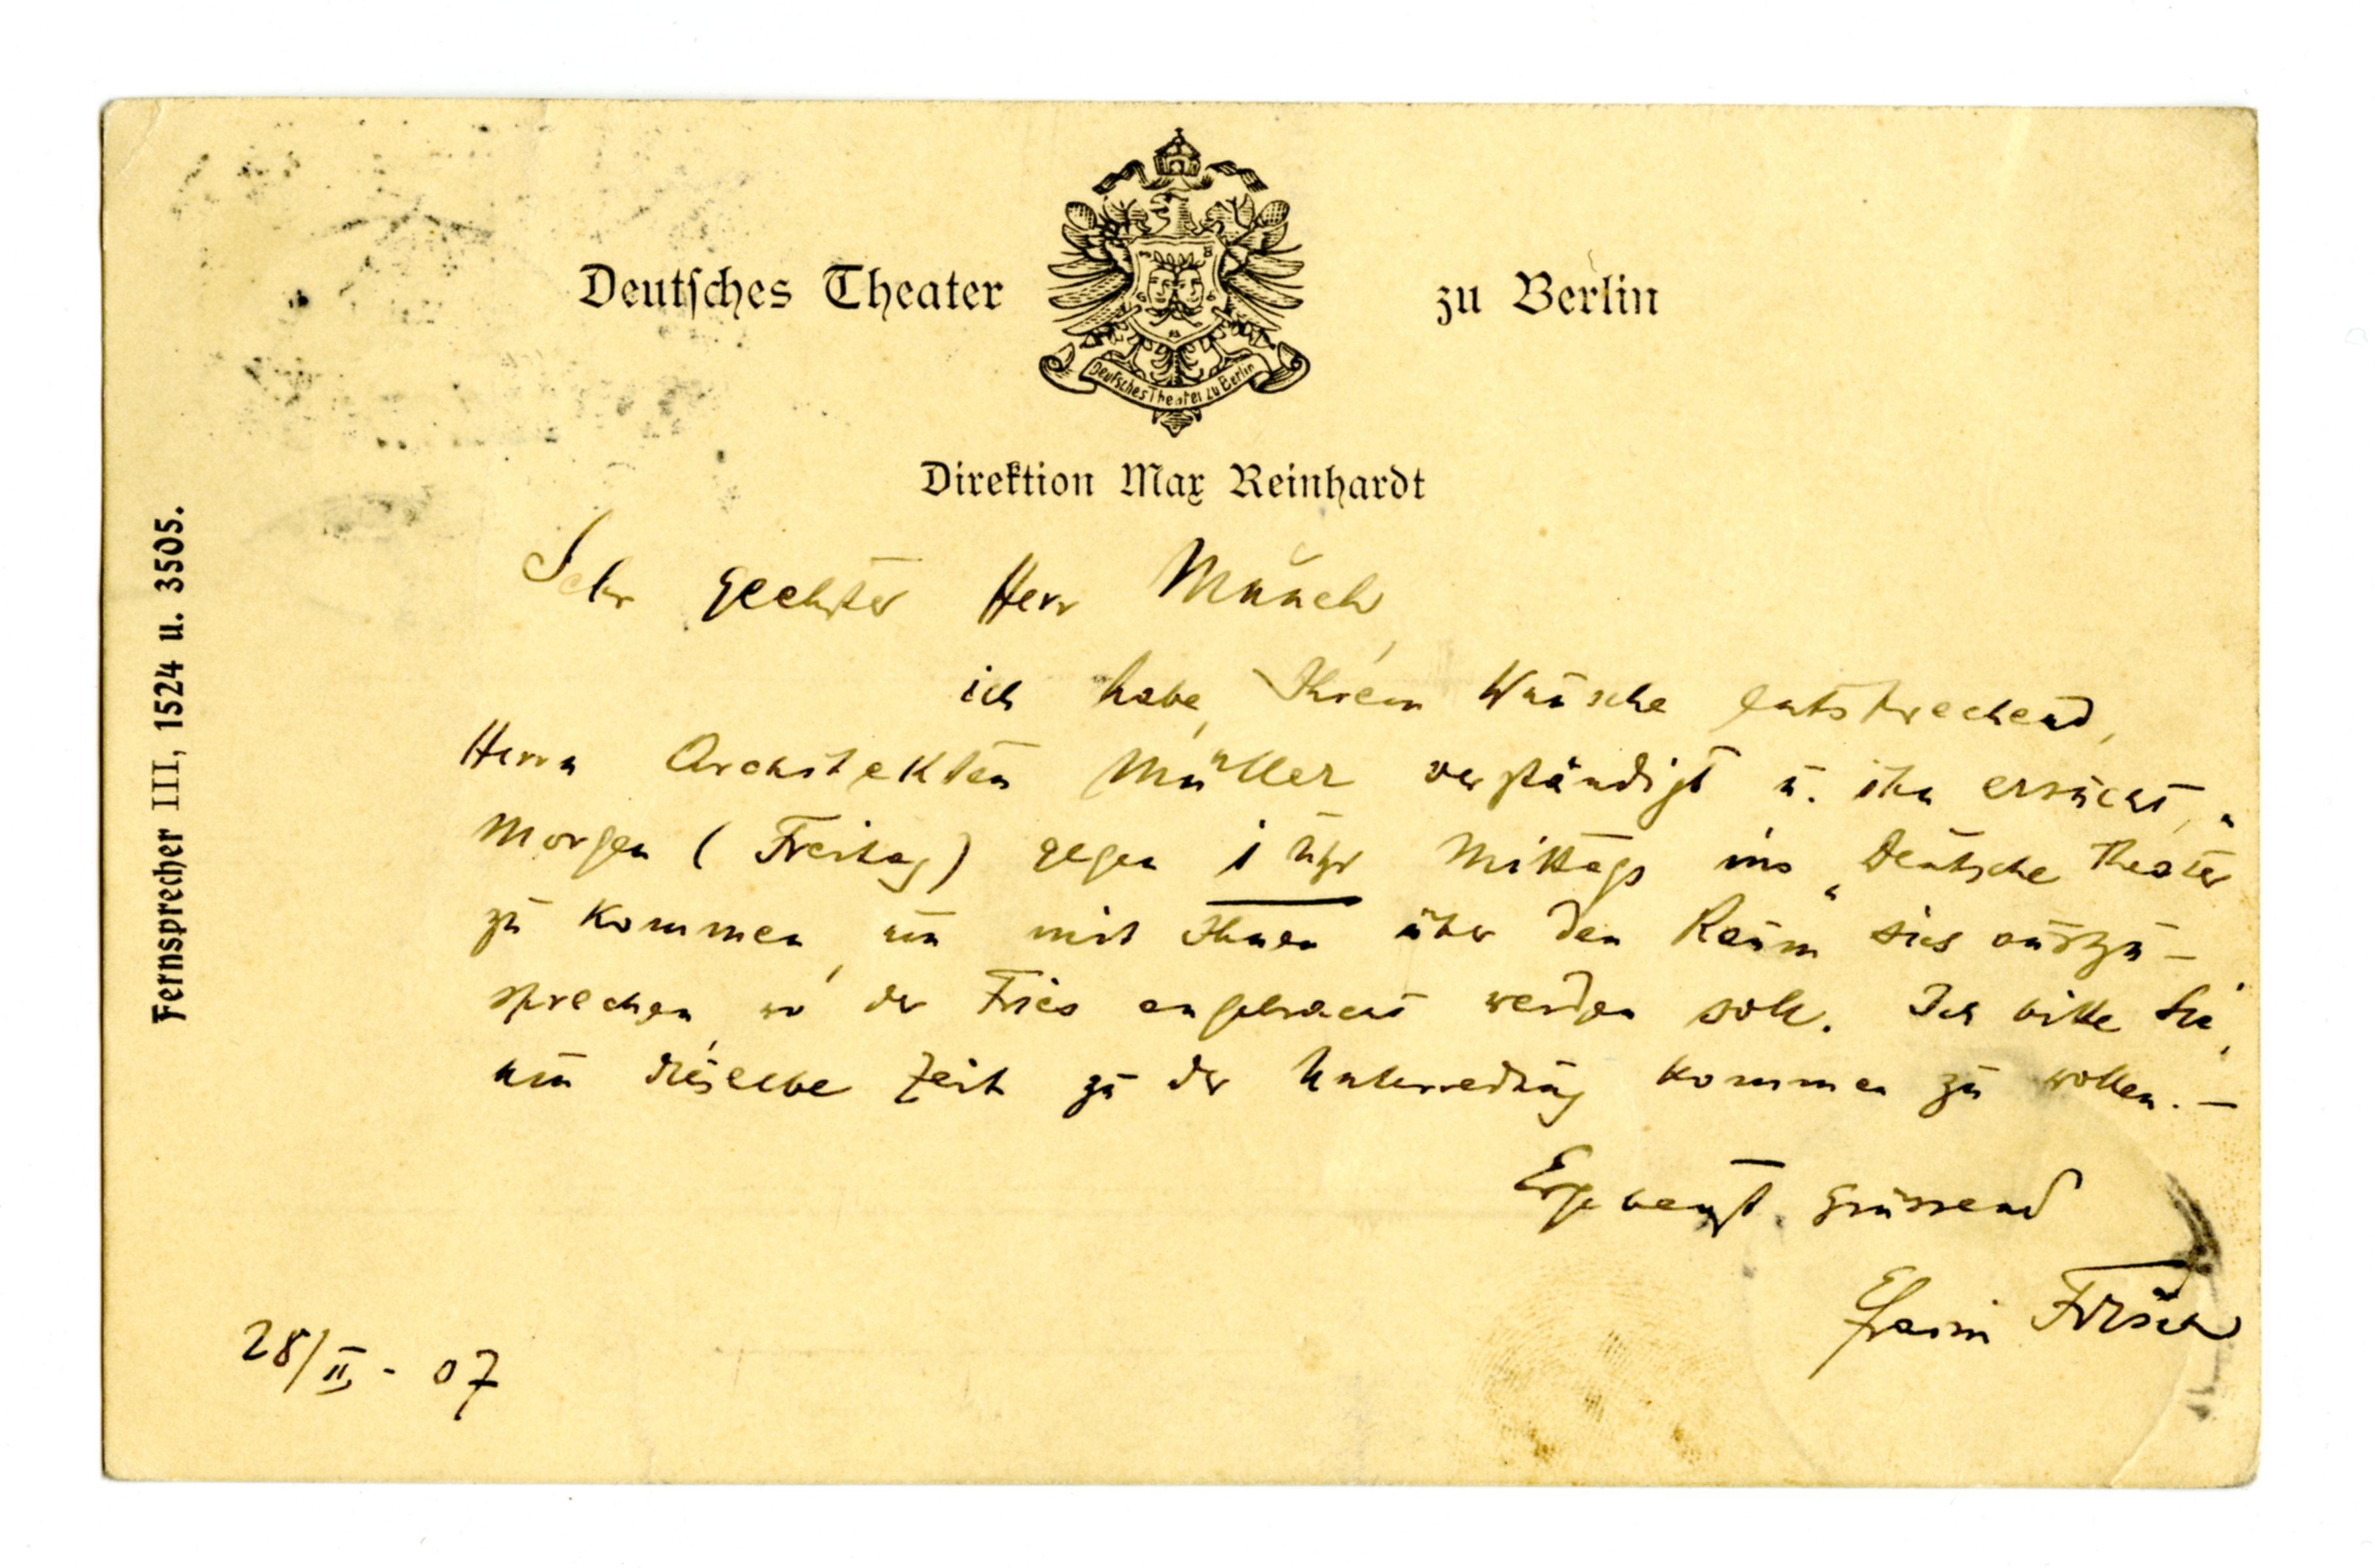 Deutsches Theater zu Berlin
Deutsches Theater zu Berlin
Direktion Max Reinhardt
Fernsprecher III, 1524 u. 3505.
Sehr geehrter Herr Munch,
ich habe, Ihrem Wunsche entsprechend,
Herrn Architekten Müller verständigt u. ihn ersucht,
morgen (Freitag) gegen 1 Uhr Mittags ins „Deutsche Theater“
zu kommen, um mit Ihnen über den Raum sich auszu-
sprechen, wo der Fries angebracht werden soll. Ich bitte Sie,
um dieselbe Zeit zu der Unterredung kommen zu wollen. –
Ergebenst grüssend
Efraim Frisch
28/II - 07